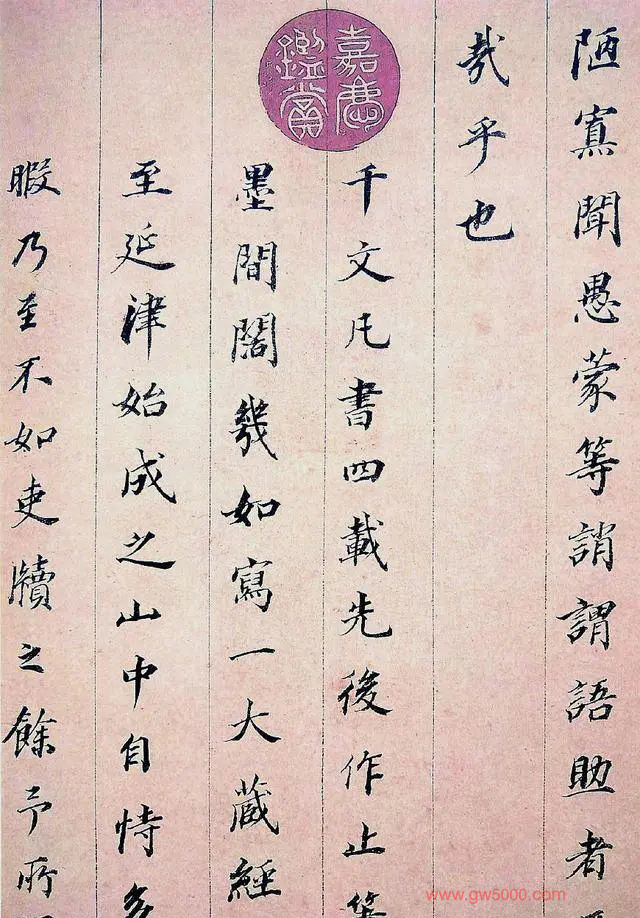 陋寡聞愚蒙等誚謂語助者
哉乎也
千文凡書四載先後作止筆
墨間闊幾如寫一大藏經
至延津始成之山中自恃多
暇乃至不如吏牘之餘予所
嘉慶鑑賞
www.gw5000.com